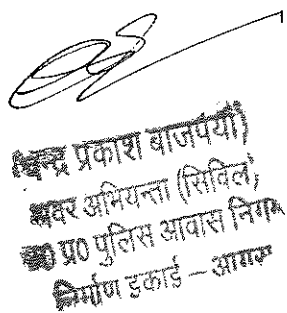 प्रकाश बाजपेयी)
अवर अभियन्ता (सिविल)
उ0 प्र0 पुलिस आवास निगम
निर्माण इकाई – आगरा